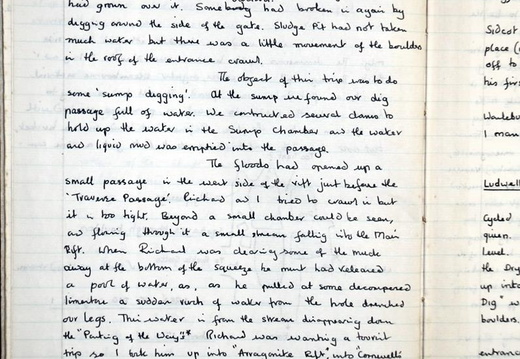 had grown over it. Somebody had broken in again by
digging around the side of the gate. Sludge Pit had not taken
much water but there was a little movement of the boulders
in the roof of the entrance crawl.
The object of this trip was to do
some 'sump digging'. At the sump we found our dig
passage full of water. We constructed several dams to
hold up the water in the Sump Chamber and the water
and liquid mud was emptied into the passage.
The floods had opened up a
small passage in the west side of the rift just before the
'Traverse Passage'. Richard and I tried to crawl in but
it is too tight. Beyond a small chamber could be seen,
and flowing through it a small stream falling into the Main
Rift. When Richard was clearing some of the muck
away at the bottom of the squeeze he must had released
a pool of water, as, as he pulled at some decomposed
limestone a sudden rush of water from the hole drenched
our legs. This water is from the stream disappearing down
the "Parting of the Ways".* Richard was wanting a tourist
trip so I took him up into Arragonite Rift, into Cornwell's
Sidcot
place (
off to
his firs
I man
Ludwell
Cycled
queen.
Level.
the Dry
up into
Dig" w
boulders.
entrance